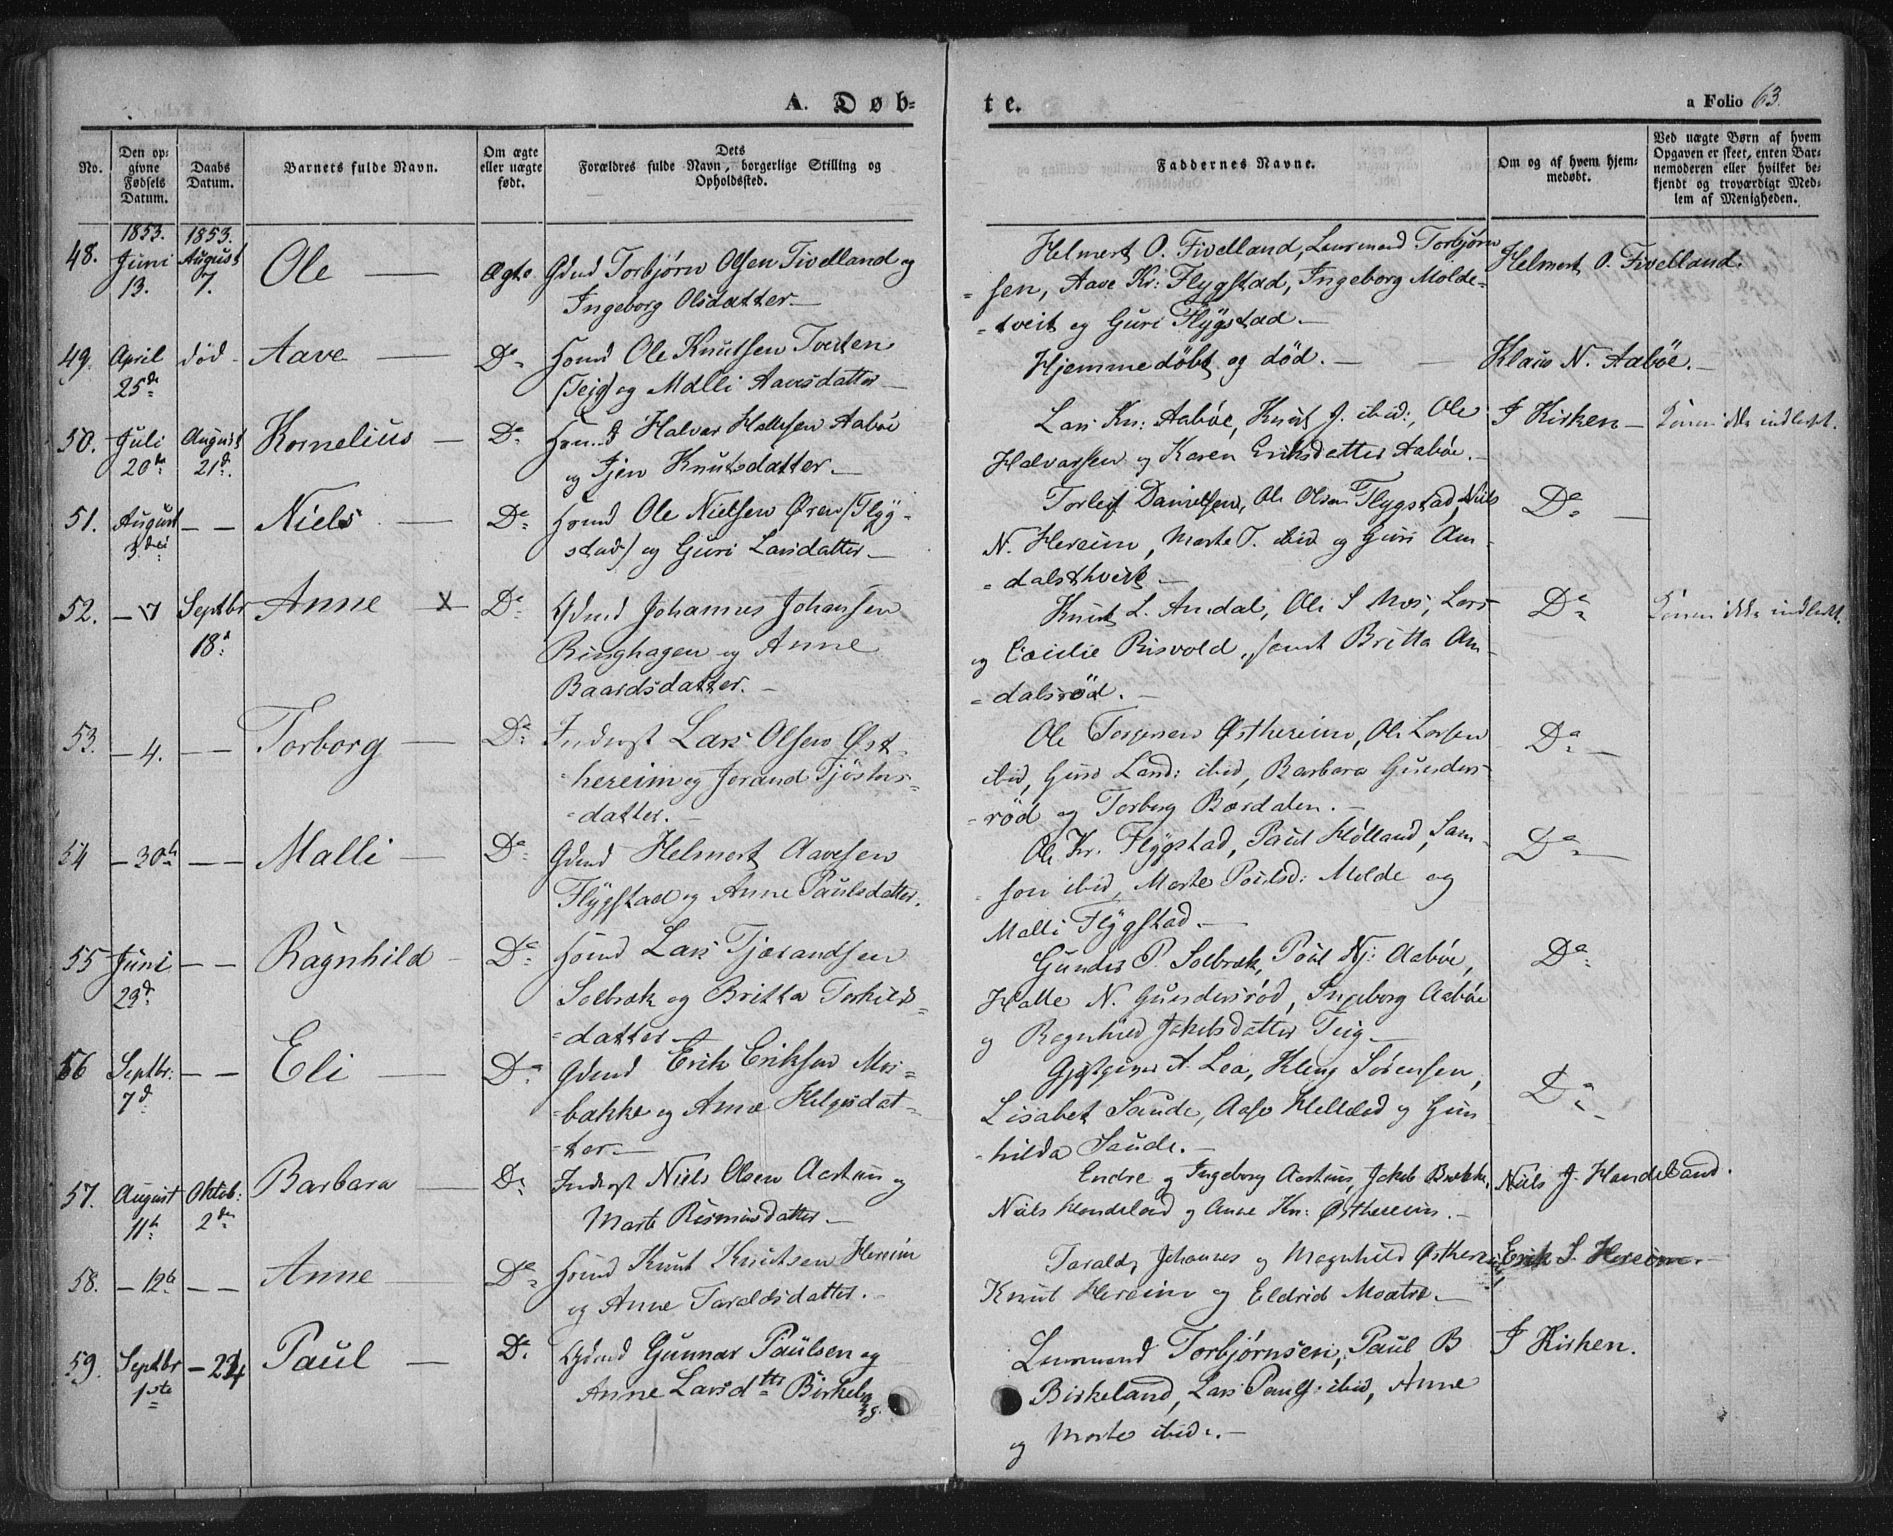 A. Døb-
te.
a Folio 63.
No.
Den op-
givne
Fødsels
Datum.
Daabs
Datum.
Barnets fulde Navn.
Om ægte
eller uægte
født.
Dets
Forældres fulde Navn, borgerlige Stilling og
Opholdssted.
Faddernes Navne.
Om og af hvem hjem-
medøbt.
Ved uægte Børn af hvem
Opgaven er skeet, enten Bar-
nemoderen eller hvilket be-
kjendt og troværdigt Med-
lem af Menigheden.
48. 1853. Juni 13. 1853. August 7. Ole — Ægte Gdmd Torbjørn Olsen Tivelland og
Ingeborg Olsdatter —
Helmert O. Tivelland, Torbjørn
sen, Aave Kr: Flygstad, Ingeborg Molde-
-tveit og Guri Flÿgstad —
Helmert O. Tivelland.
49. April 25de død - Aave — Do Huusmd Ole Knutsen Tveiten
(Teig) og Malli Aavesdatter —
Hjemmedøbt og død. —
Klaus N. Aabøe. —
50. Juli 20de August 21de Kornelius — Do Huusmd Halvar Hallesen Aabøe
og Knutsdatter. —
Lars Kn: Aabøe, Knut J. ibid:, Ole
Halvarsen og Karen Eriksdatter Aabøe. —
I Kirken — Konen ikke indledet.
51. August — — Niels — Do Huusmd Ole Nielsen Øren (Flyg-
stad) og Guri Larsdatter —
Torleif Danielsen, Ole Olsen Flygstad, Niels
N. Hereim, Marte T. ibid og Guri Am-
-dalsthveit —
Do —
52. — 7 Septbr 18de Anne — X Do Gdmd Johannes Johansen
Ringhagen og Anne
Baardsdatter. —
Knut L. Amdal, Ole S Moe, Lars
og Cæcilie Risvold, samt Britta Am-
-dalsrød. —
Do Konen ikke indledet.
53. — 4. — — Torborg — Do Inderst Lars Olsen Øst-
-hereim og Jorand Tjøstøvs-
-datter. —
Ole Østhereim, Ole Larsen
ibid, Guri Larsd: ibid, Barbara Gunders-
-rød og Torborg Bærdalen. —
Do —
54 — 30te — — Malli — Do Gdmd Helmert Aavesen
Flÿgstad og Anne Paulsdatter.
Ole Kr. Flÿgstad, Paul Høiland, Sam-
son ibid, Marte Poulsd: Molde og
Malli Flÿgstad. —
Do —
55 Juni 29de — — Ragnhild - Do Huusmd Lars Tjærandsen
Solbræk og Britta Torkilds-
-datter —
Gunder P. Solbræk, Poul Nj: Aabøe,
Halle N. Gundersrød, Ingeborg Aabøe
og Ragnhild Jakobsdatter Teig —
Do
56 Septbr: 7de — — Eli — Do Gdmd Erik Eriksen Moe-
-bakke og Anna Helgesdat-
-ter —
Gjæstgiver A. Lea, Kleng Sørensen,
Lisabet Saude, Aase Helleland og Gun-
-hilda Saude. —
Do
57. August 11te Oktob: 2den Barbara — Do Inderst Niels Olsen Aartun og
Marte Rasmusdatter —
Endre og Ingeborg Aartun, Jakob Bakke,
Niels Handeland og Anne Kn: Østhereim. —
Niels J. Handeland.
58. — 12te — — Anne — Do Huusmd Knut Knutsen Hereim
og Anne Taraldsdatter. —
Tarald, Johannes og Magnhild Østhereim,
Knut Hereim og Eldrid Maatre. —
Erik S. Hereim. —
59. Septbr 1ste — 24 Paul — Do Gdmd Gunnar Paulsen og
Anne Larsdtter Birkeland.
Torbjørnsen, Paul B
Birkeland, Lars Pauls: ibid, Anne
og Marte ibid. —
I Kirken.